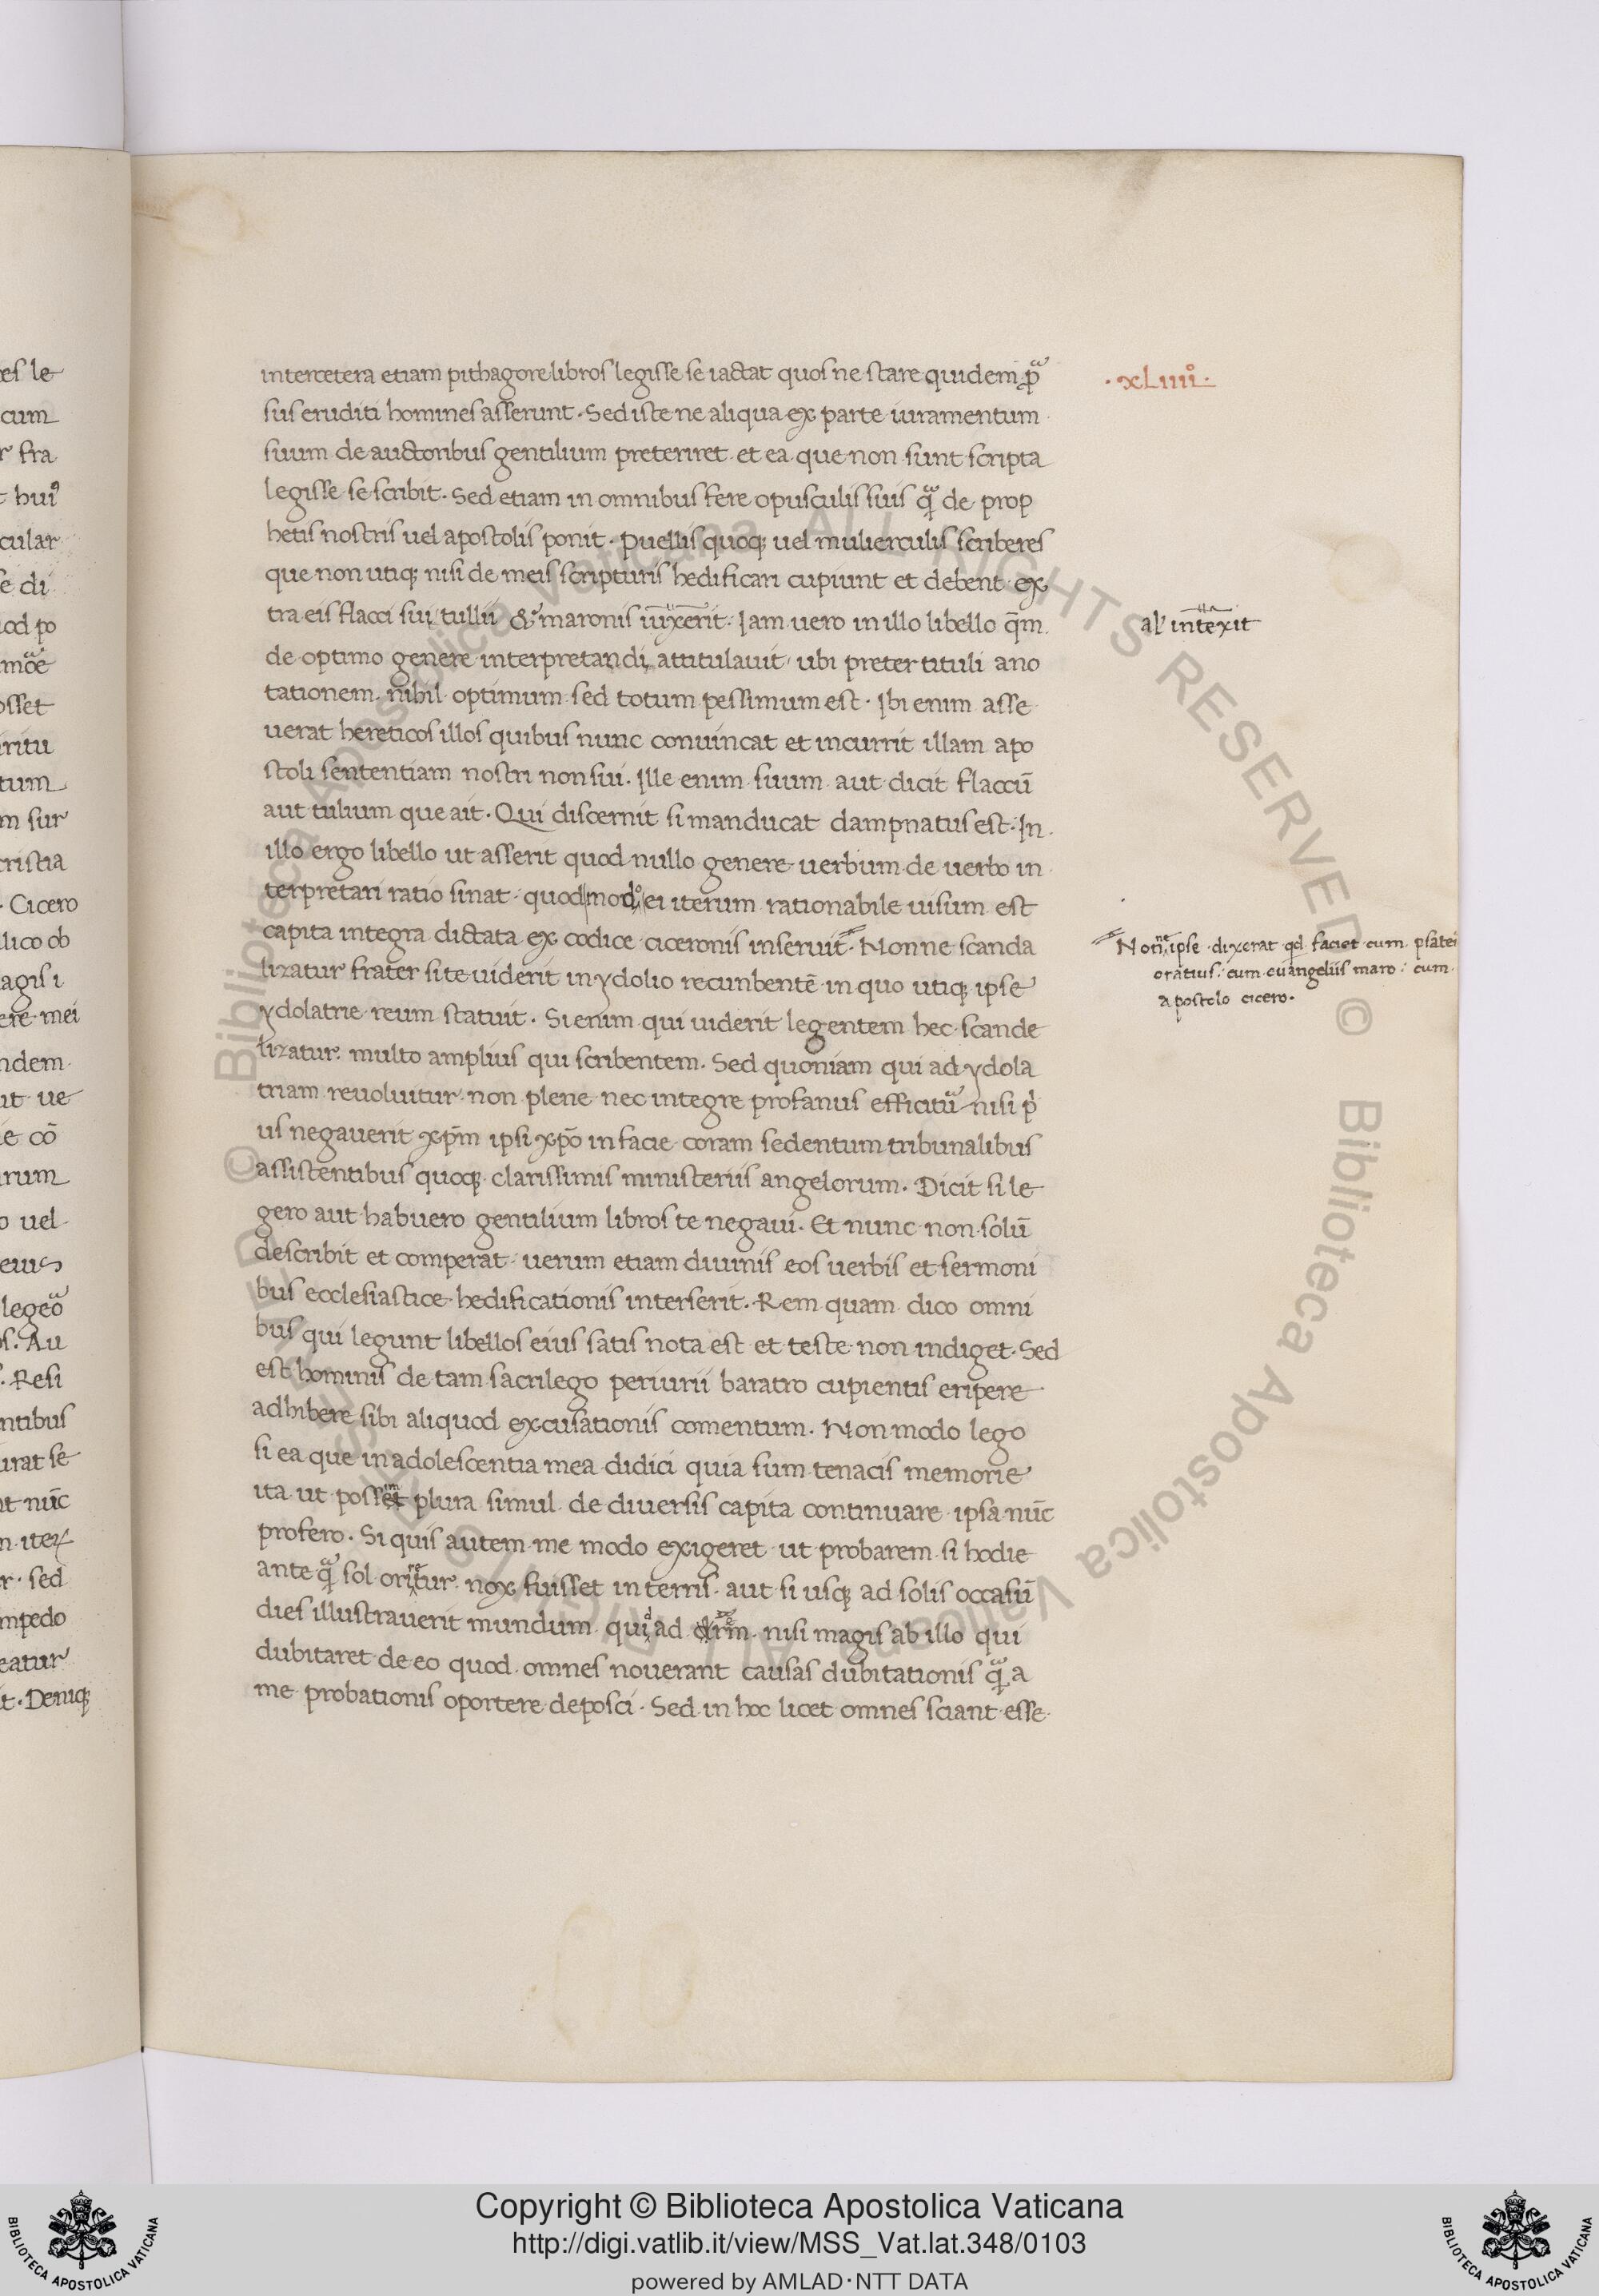 inter cetera etiam pithagore libros legisse se iactat quos ne stare quidem p̄
sus eruditi homines asserunt. Sed iste ne aliqua ex parte iuramentum
suum de auctoribus gentilium preteriret et ea que non sunt scripta
legisse se scribit. Sed etiam in omnibus fere opusculis suis qͣ de prop
hetis nostris uel apostolis ponit. Puellis quoq; uel mulierculis scriberes
que non utiq; nisi de meis scripturis hedificari cupiunt et debent ex
tra eis flacci sui tullii & maronis iūxerit. Iam uero in illo libello q̄m
de optimo genere interpretandi attitulauit ubi preter tituli ano
tationem nihil optimum sed totum pessimum est. Ibi enim asse
uerat hereticos illos quibus nunc conuincat et incurrit illam apo
stoli sententiam nostri non sui. Ille enim suum aut dicit flaccū
aut tulium que ait. Qui discernit si manducat dampnatus est. In
illo ergo libello ut asserit quod nullo genere uerbum de uerbo in
terpretari ratio sinat quod modo ei iterum rationabile uisum est
capita integra dictata ex codice ciceronis inseruit. Nonne scanda
lizatur frater si te uiderit in ydolio recunbentē in quo utiq; ipse
ydolatrie reum statuit. Si enim qui uiderit legentem hec scande
lizatur multo amplius qui scribentem. Sed quoniam qui ad ydola
triam reuoluitur non plene nec integre profanus efficitͣ nisi pⁱ
us negauerit xp̄m ipsi xp̄o in facie coram sedentum tribunalibus
assistentibus quoq; clarissimis ministeriis angelorum. Dicit si le
gero aut habuero gentilium libros te negaui. Et nunc non solū
describit et comperat uerum etiam diuinis eos uerbis et sermoni
bus ecclesiastice hedificationis interserit. Rem quam dico omni
bus qui legunt libellos eius satis nota est et teste non indiget. Sed
est hominis de tam sacrilego periurii baratro cupientis eripere
adhibere sibi aliquod excusationis comentum. Non modo lego
si ea que in adolescentia mea didici quia sum tenacis memorie
ita ut possem plura simul de diuersis capita continuare ipsa nūc
profero. Si quis autem me modo exigeret ut probarem si hodie
ante qͣ sol oriretur nox fuisset in terris aut si usq; ad solis occasū
dies illustrauerit mundum quid ad nisi magis ab illo qui
dubitaret de eo quod omnes nouerant causas dubitationis qͣ a
me probationis oportere deposci. Sed in hoc licet omnes sciant esse
.xLiiiiº.
al' intexit
Nonne ipse dixerat qd faciet cum psalte
oratius cum euangeliis maro cum
apostolo cicero.
es le
cum
r fra
t hui⁹
cular
se di
od po
osset
iritu
tum
m sur
cristia
. Cicero
lico ob
agis i
ere mei
ndem
it ue
e cō
rum
o uel
eius
s. Au
. Resi
ntibus
urat se
t nūc
r sed
mpedo
eatur
t. Deniq;
© Biblioteca Apostolica Vaticana ALL RIGHTS RESERVED
© Biblioteca Apostolica Vaticana ALL RIGHTS RESERVED
Copyright © Biblioteca Apostolica Vaticana
http://digi.vatlib.it/view/MSS_Vat.lat.348/0103
powered by AMLAD·NTT DATA
BIBLIOTECA APOSTOLICA VATICANA
BIBLIOTECA APOSTOLICA VATICANA